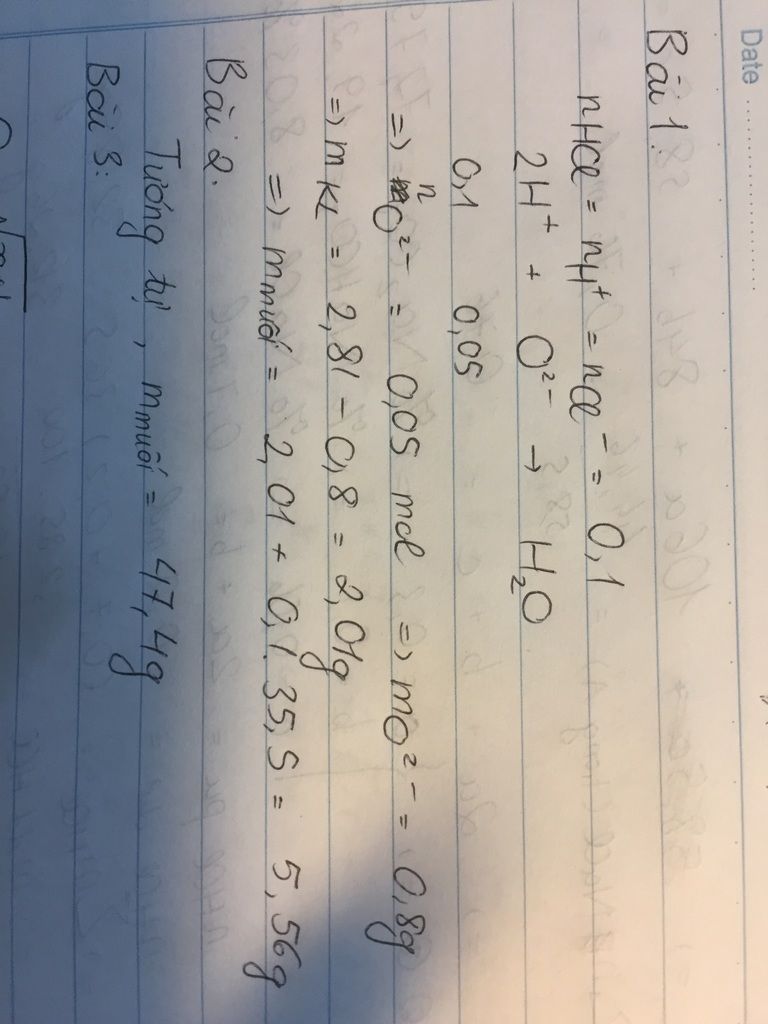 Date
Bài 1:
nHCl = nH⁺ = nCl⁻ = 0,1
2H⁺ + O²⁻ → H₂O
0,1 0,05
=> nO²⁻ = 0,05 mol => mO²⁻ = 0,8g
=> m KL = 2,81 - 0,8 = 2,01g
=> m muối = 2,01 + 0,1.35,5 = 5,56g
Bài 2.
Tương tự, m muối = 47,4g
Bài 3: